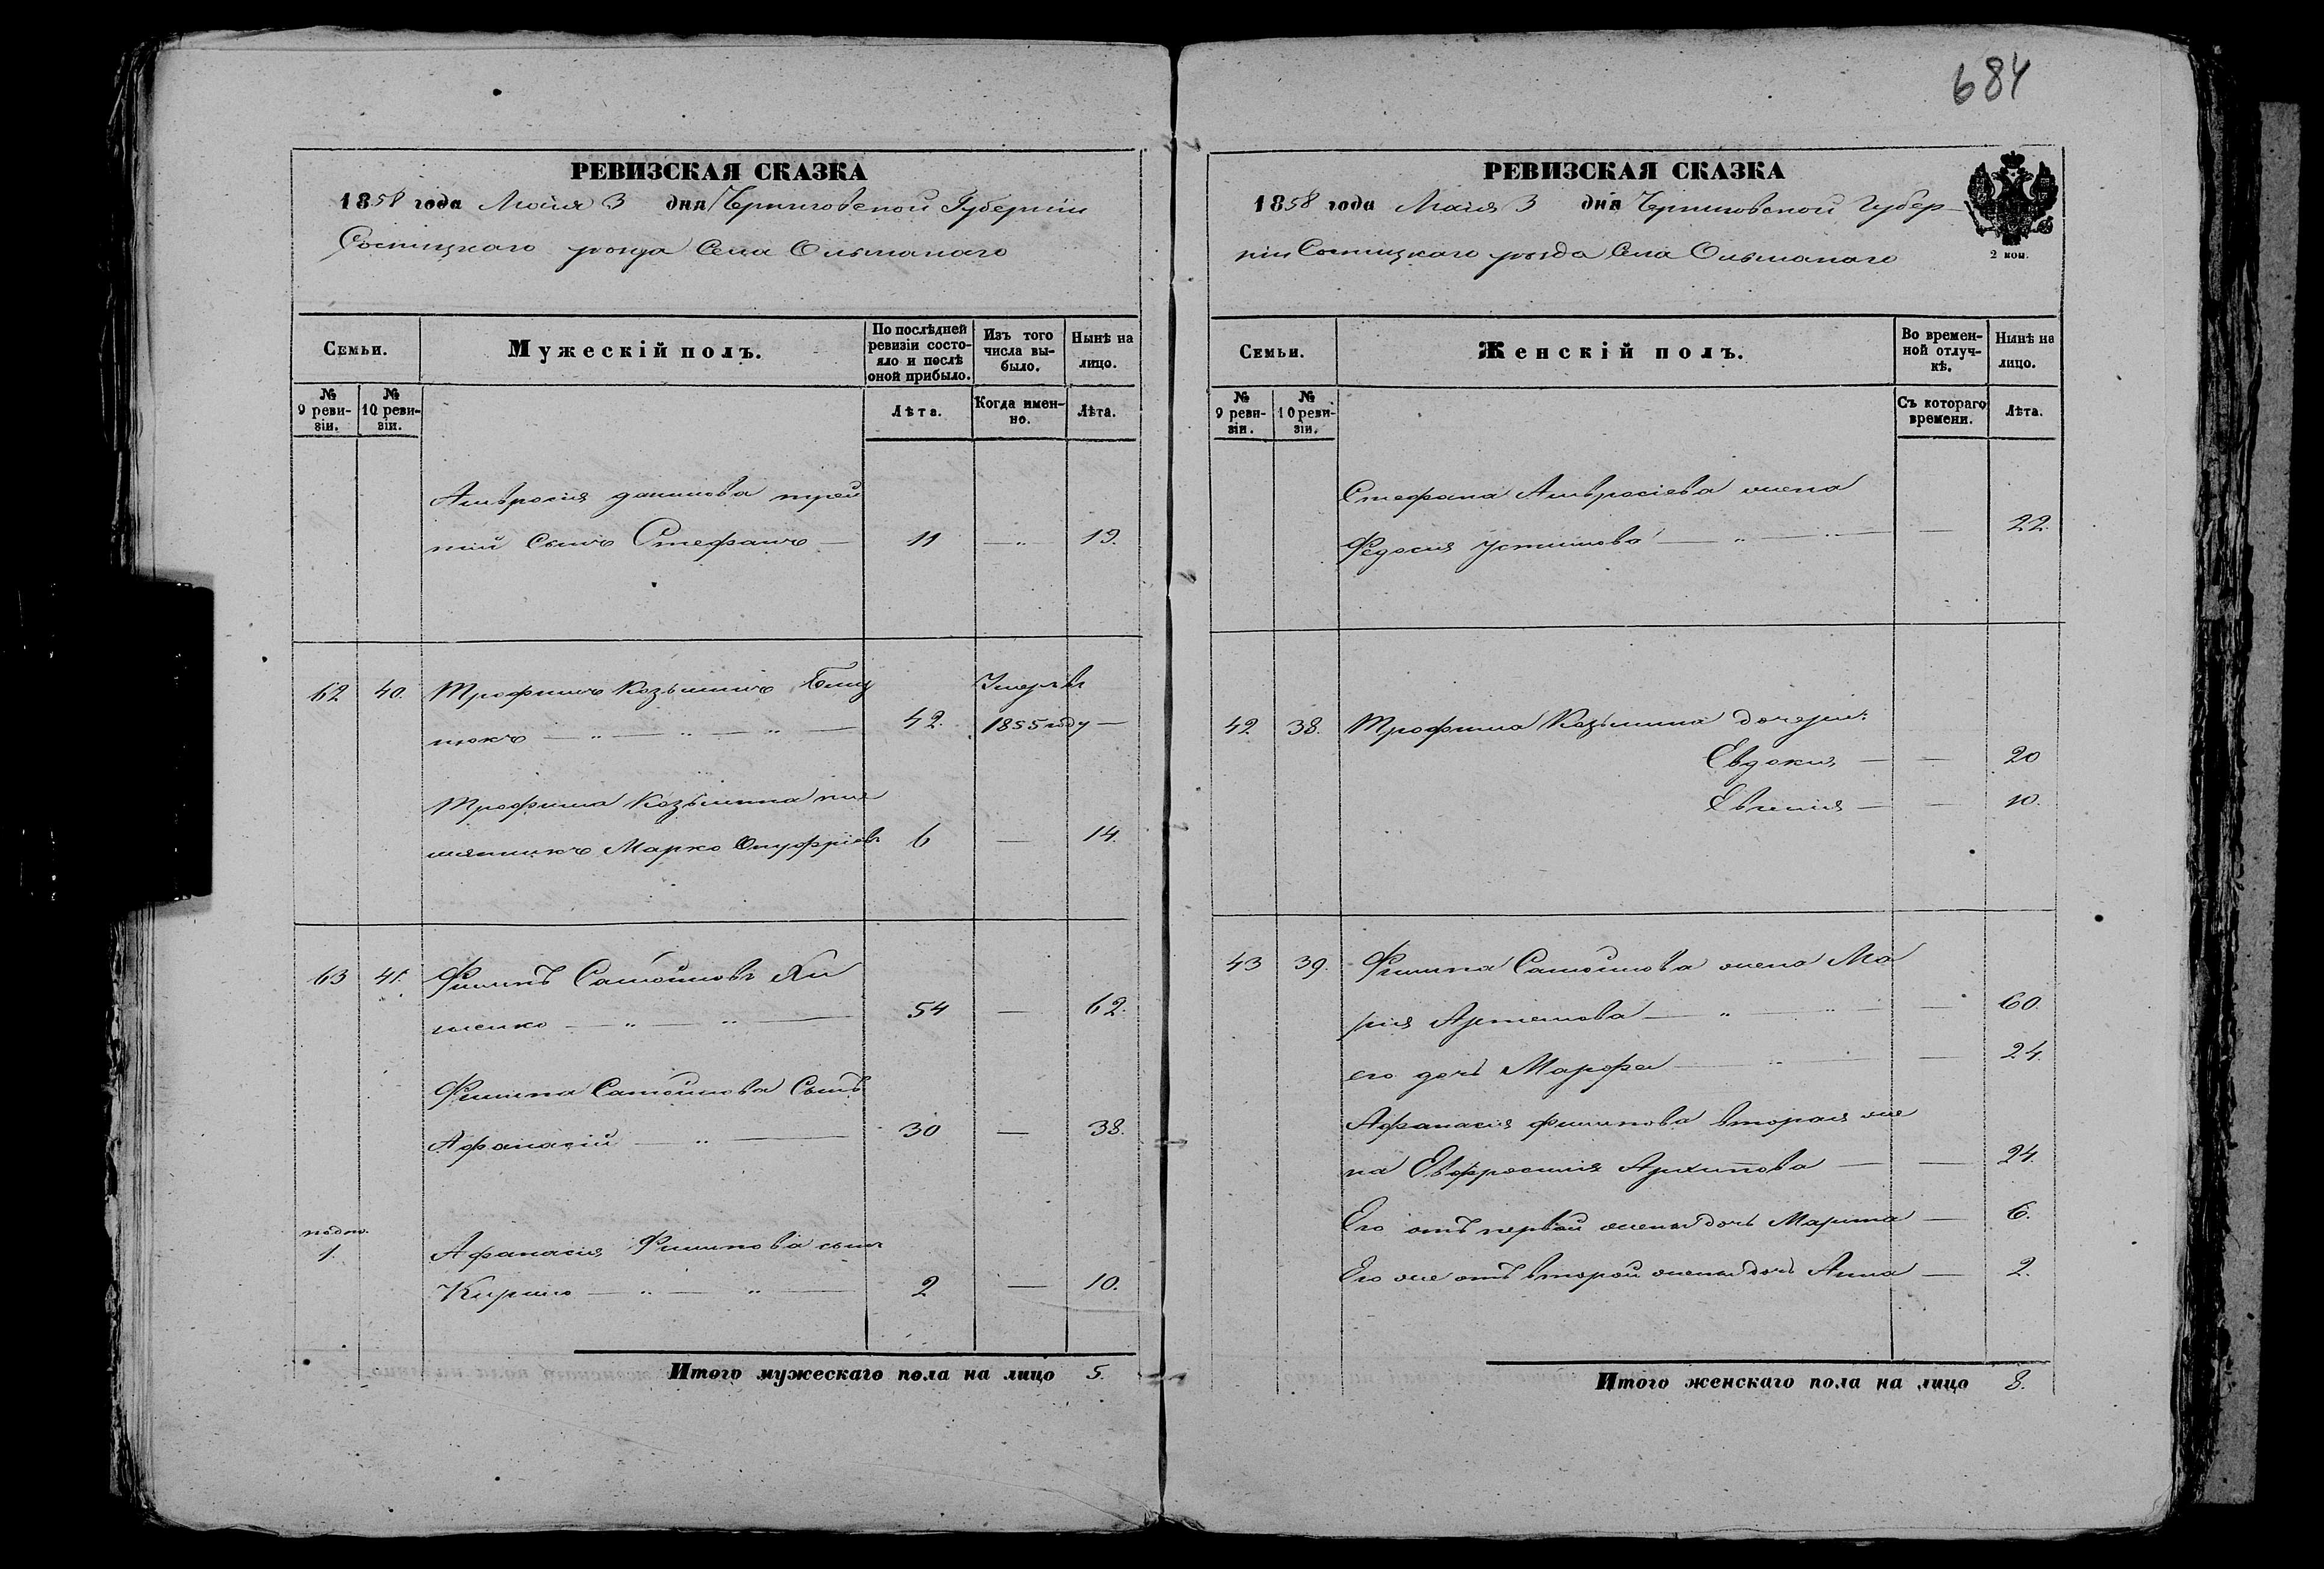 684
РЕВИЗСКАЯ СКАЗКА
1858 года Мая 3 дня Черниговской Губерніи
Сосницкаго уѣзда Села Ольшанаго
Семьи.
Мужескій полъ.
По послѣдней ревизіи состояло и послѣ оной прибыло.
Изъ того числа выбыло.
Нынѣ на лицо.
№ 9 ревизіи.
№ 10 ревизіи.
Лѣта.
Когда именно.
Лѣта.
Амвросія данилова трей
тій Сынъ Стефанъ — 11 — „ — 19.
62 40. Трофимъ Козьминъ
42. Умеръ въ 1855 году —
Трофима Козьмина пле
мянникъ Марко Онуфріевъ 6 — 14.
63 41. Филипъ Самойловъ
54 — 62.
Филипа Самойлова Сынъ
Афанасій — „ — 30 — 38.
1. Афанасія Филипова сынъ
Кирило — „ — „ — 2 — 10.
Итого мужескаго пола на лицо 5.
РЕВИЗСКАЯ СКАЗКА
1858 года Мая 3 дня Черниговской Губер
ніи Сосницкаго уѣзда Села Ольшанаго
2 коп.
Семьи.
Женскій полъ.
Во временной отлучкѣ.
Нынѣ на лицо.
№ 9 ревизіи.
№ 10 ревизіи.
Съ котораго времени.
Лѣта.
Стефана Амвросіева жена
Федосия Устимова — „ — „ — — 22.
42 38. Трофима Козьмина дочери:
Евдокия — — 20
— — 10.
43 39. Филипа Самойлова жена Ма
рия Артемова — „ — „ — — 60.
его дочь Марфа — „ — — 24.
Афанасия филипова вторая же
на Евфросинія Архипова — — 24.
Его отъ первой жены дочь Марина — 6.
Его же отъ второй жены дочь Анна — 2.
Итого женскаго пола на лицо 8.